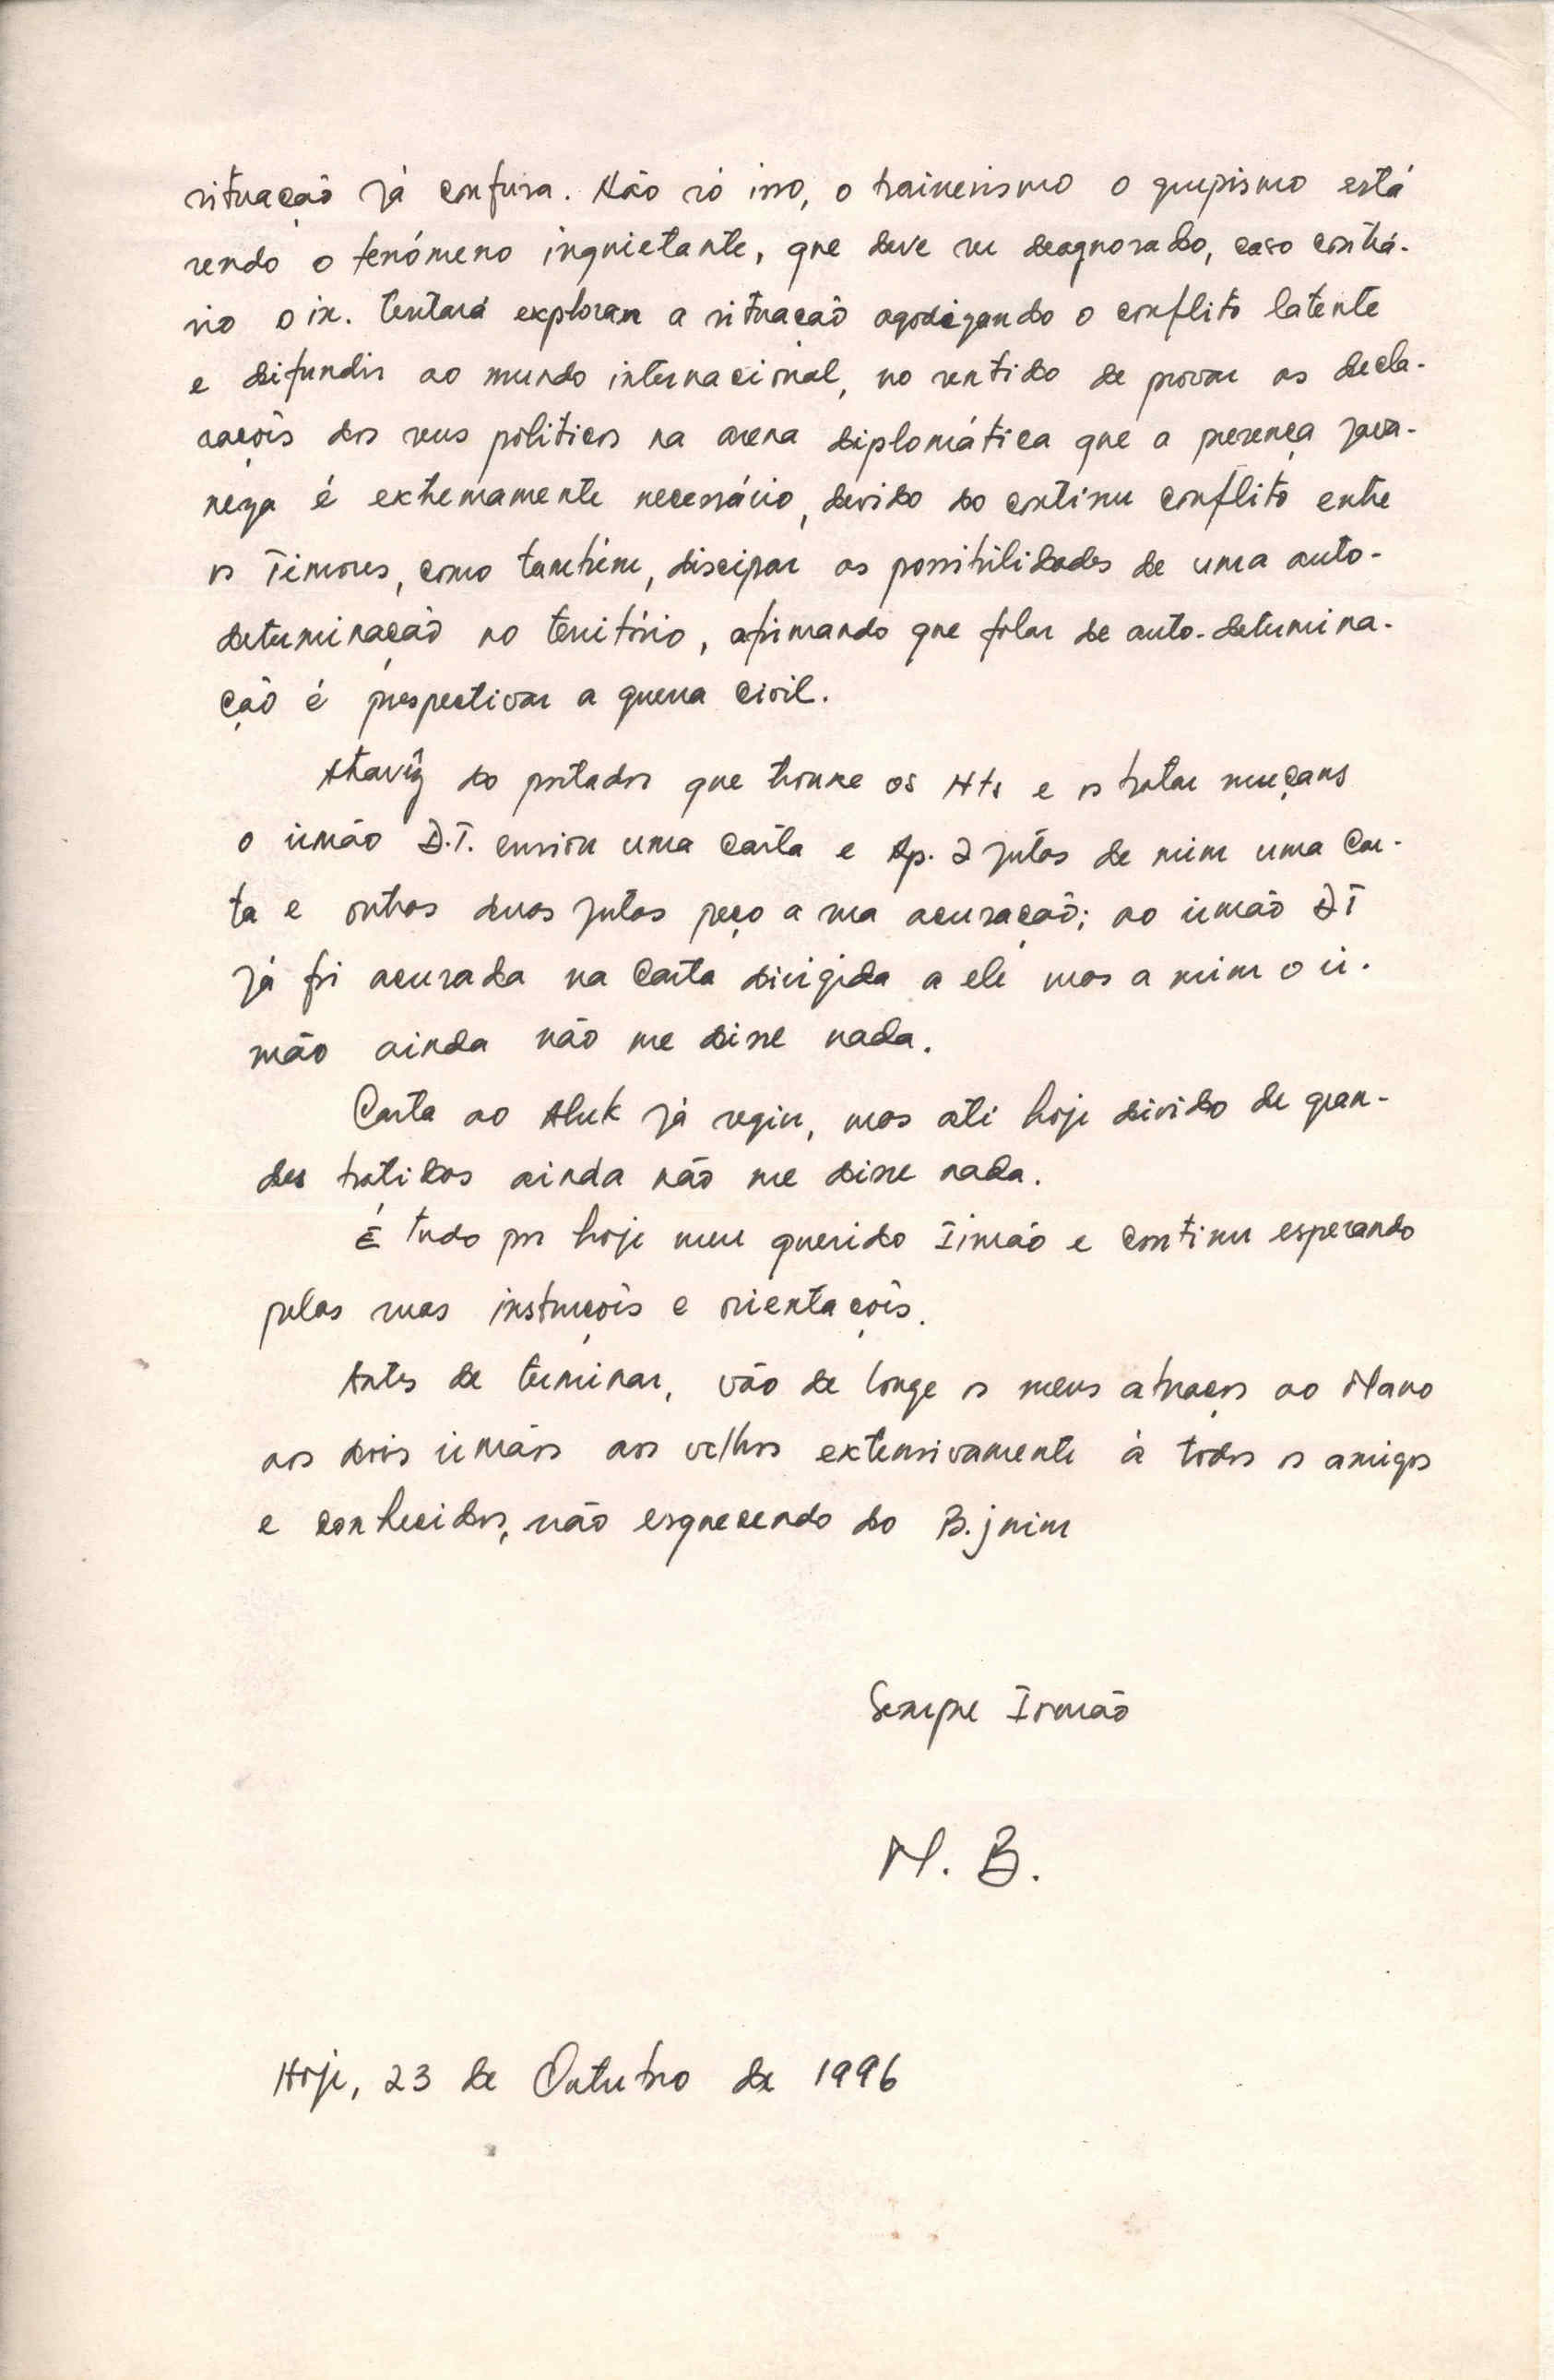 situação já confusa. Não só isso, o baineirismo o grupismo está
sendo o fenómeno inquietante, que deve ser deagnosado, caso contrá-
rio o in. tentará exploran a situação agodizando o conflito latente
e difundir ao mundo internacional, no sentido de provar as decla-
rações dos seus politicos na arena diplomática que a presença java-
neza é extremamente necessário, devido do continu conflito entre
os Timores, como também, discipar as possibilidades de uma auto-
determinação no território, afirmando que falar de auto-determina-
ção é prespectivar a guerra civil.
Através do portador que trouxe os Hts e os
o irmão D.T. enviou uma carta e Ap. 2 jutas de mim uma car-
ta e outras duas jutas peço a sua acusação; ao irmão DT
já foi acusada na carta dirigida a ele mas a mim o ir-
mão ainda não me disse nada.
Carta ao Aluk já seguiu, mas até hoje divido de gran-
des batidas ainda não me disse nada.
É tudo por hoje meu querido Irmão e continu esperando
pelas suas instruções e orientações.
Antes de terminar, vão de longe os meus abraços ao Mano
aos dois irmãos aos velhos extensivamente à todos os amigos
e conhecidos, não esquecendo do B. jnim
Sempre Irmão
M. B.
Hoje, 23 de Outubro de 1996